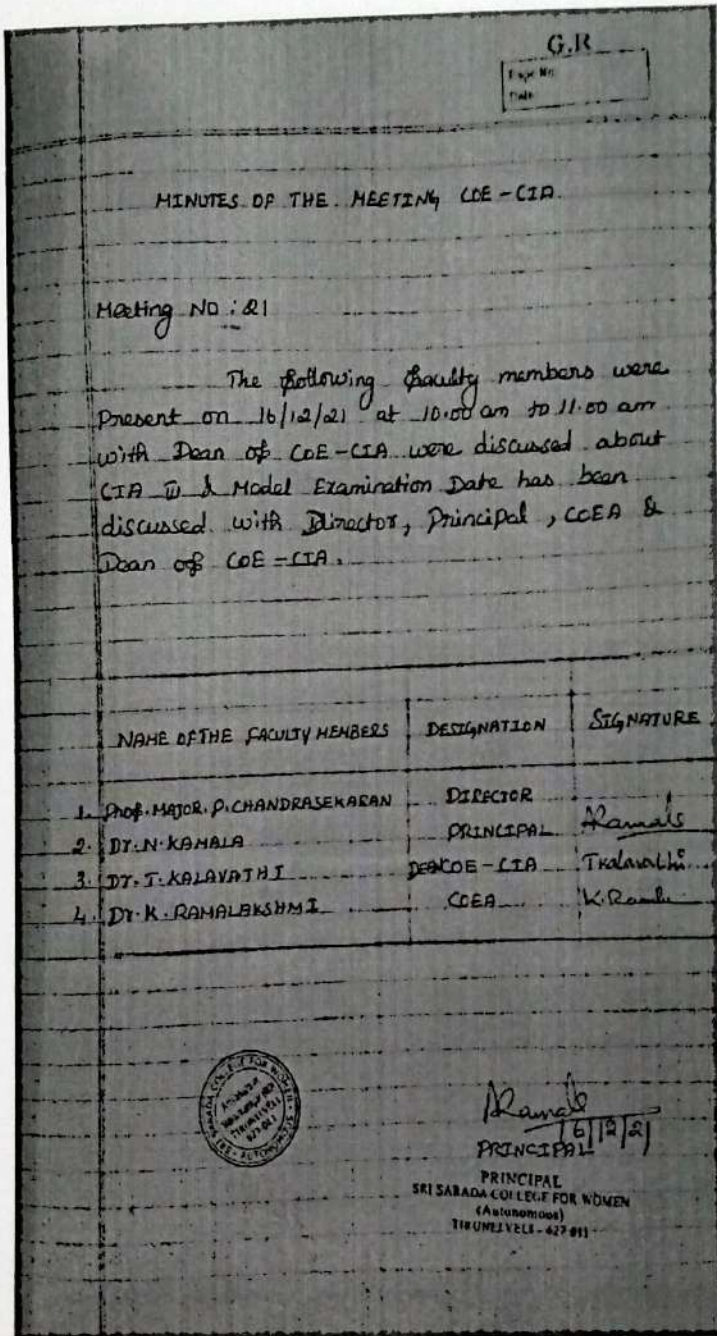 G.R
Page No:
Date
MINUTES OF THE MEETING COE-CIA.
Meeting No: 21
The following faculty members were
Present on 16/12/21 at 10.00 am to 11.00 am
with Dean of COE-CIA were discussed about
CIA III & Model Examination Date has been
discussed with Director, Principal, COEA &
Dean of COE-CIA.
NAME OF THE FACULTY MEMBERS DESIGNATION SIGNATURE
1. Prof. MAJOR. P. CHANDRASEKARAN DIRECTOR
2. Dr. N. KAMALA PRINCIPAL NKamala
3. Dr. T. KALAVATHI DEANCOE-CIA TKalavathi
4. Dr. K. RAMALAKSHMI COEA K.Ramla
SRI SARADA COLLEGE FOR WOMEN - AUTONOMOUS
TIRUNELVELI
627 011
NKamala
16/12/21
PRINCIPAL
PRINCIPAL
SRI SARADA COLLEGE FOR WOMEN
(Autonomous)
TIRUNELVELI - 627 011